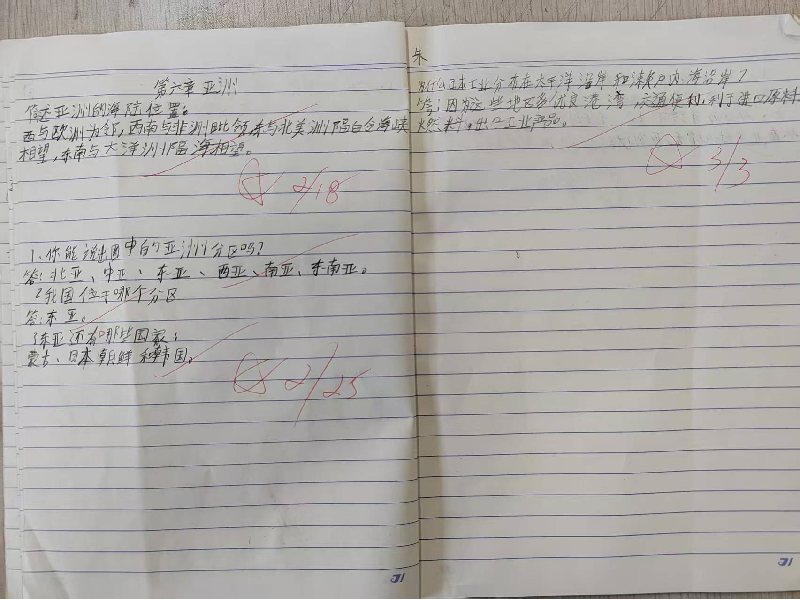 第六章 亚洲
简述亚洲的海陆位置。
西与欧洲为邻,西南与非洲毗邻,东与北美洲隔白令海峡
相望,东南与大洋洲隔海相望。
2/18
1、你能说出图中的亚洲分区吗?
答:北亚、中亚、东亚、西亚、南亚、东南亚。
2我国位于哪个分区
答:东亚。
3东亚还有哪些国家:
蒙古、日本朝鲜和韩国。
2/25
31
朱
为什么日本工业分布在太平洋沿岸和濑户内海沿岸?
答:因为这些地区多优良港湾 交通便利,利于进口原料
燃料,出口工业产品。
3/3
31